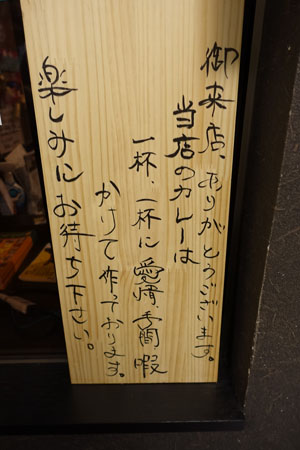 御来店、ありがとうございます。
当店のカレーは
一杯、一杯に愛情、手間暇
かけて作っております。
楽しみにお待ち下さい。